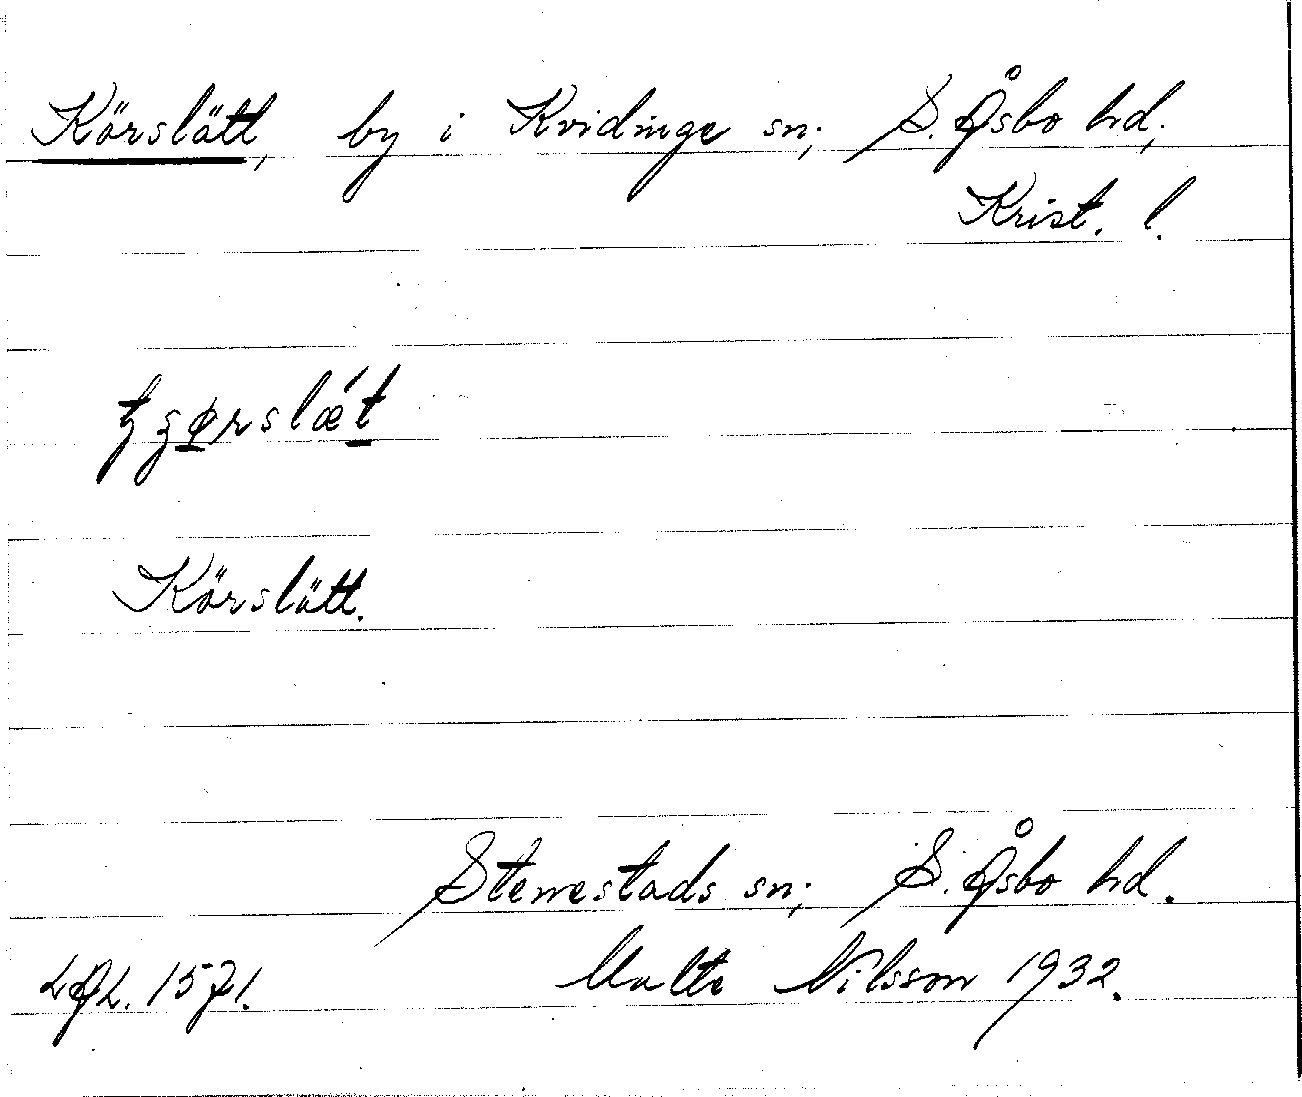 Körslätt, by i Kvidinge sn; S. Åsbo hd;
Krist. l.
Körslätt.
Stenestads sn; S. Åsbo hd.
LAL. 1571. Malte Nilsson 1932.